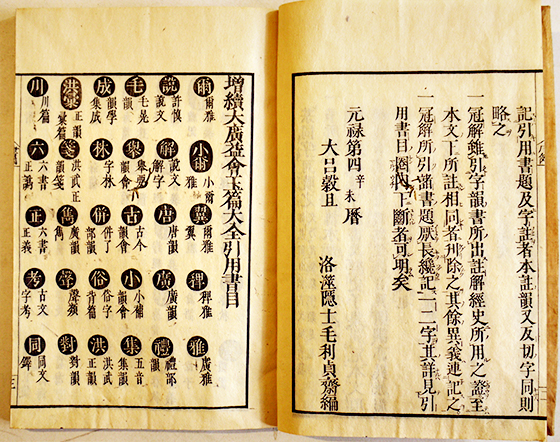 記引用書題及字註者本註韻又及切字同則
略之
一冠解雖引字韻書所出註解經史所用之證至
本文下所註相同者刪除之其餘異義連記之
一冠解所引諸書題厭長纔記一二字其詳見引
用書目圏內下斷者可明矣
元禄第四辛未曆
大呂穀旦
洛澨隱士毛利貞齋編
增續大廣益會玉篇大全引用書目
爾 爾雅
小爾 小爾雅
翼 爾雅翼
釋 釋雅
雅 廣雅
説 許愼説文
解 説文解字
唐 唐韻
廣 廣韻
禮 禮部
毛 毛晃韻
擧 擧要韻會
古 古今韻會
小 小補韻會
集 五音集韻
成 韻學集成
林 字林
併 併了部韻
俗 俗字背篇
洪 洪武正韻
洪彙 正韻彙篇
箋 洪武韻箋
雋 韻雋
聲 聲類
對 對韻
川 川篇
六 六書正譌
正 六書正義
考 古文字考
同 同文鐸